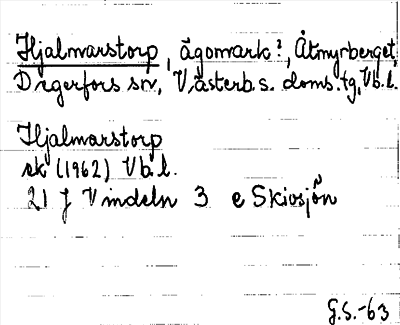 Hjalmarstorp, ägomark?, Åtmyrberget,
Degerfors sn, Västerb.s. doms.tg, Vb.l.
Hjalmarstorp
ek (1962) Vb.l.
21 J Vindeln 3 e Skivsjön
G.S.-63